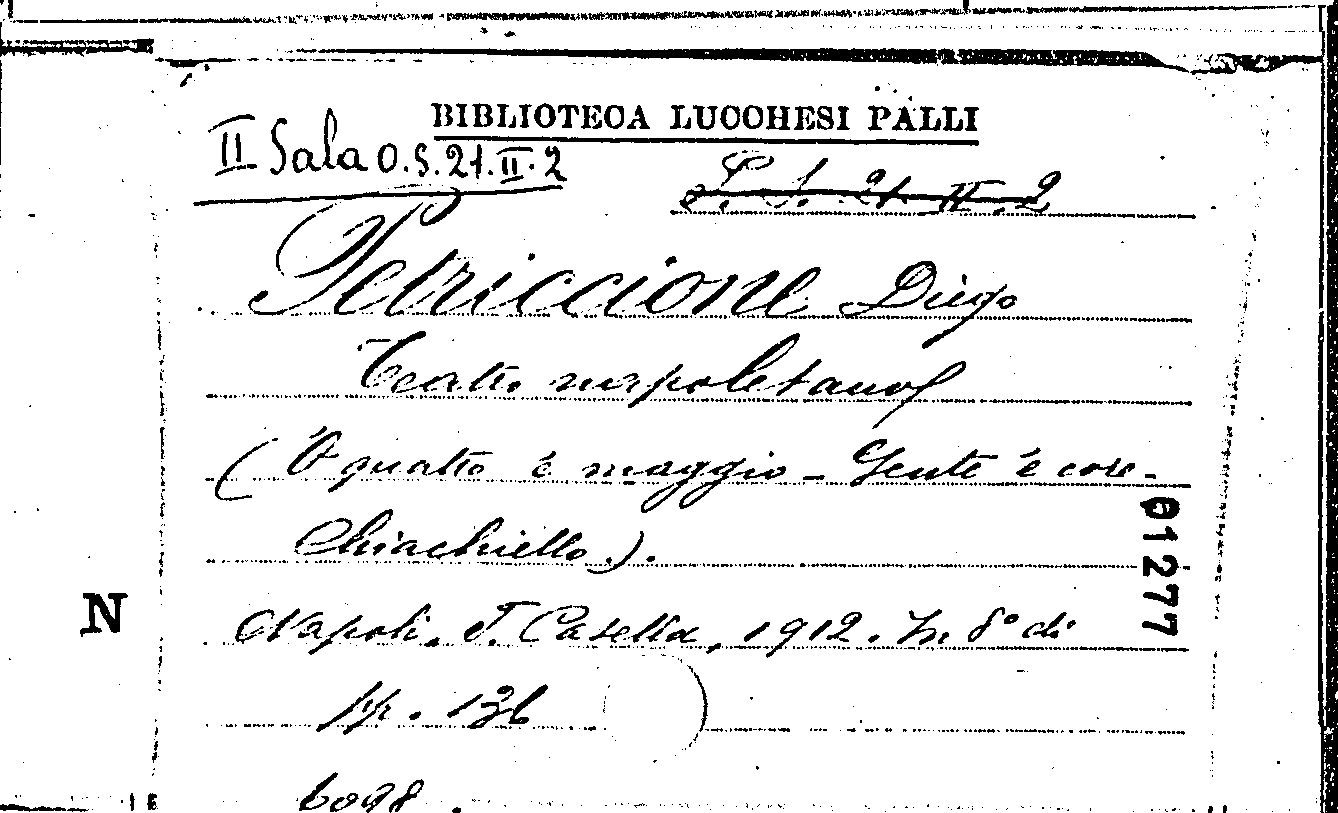 BIBLIOTECA LUCCHESI PALLI
II Sala O.S.21.II.2
L. S. 21 II. 2
Petriccione Diego
Teatro napoletano
('O quatto 'e maggio - Gente 'e core -
Chiachiello).
01277
N
Napoli. F. Casella, 1912. In 8° di
pp. 136
6098.